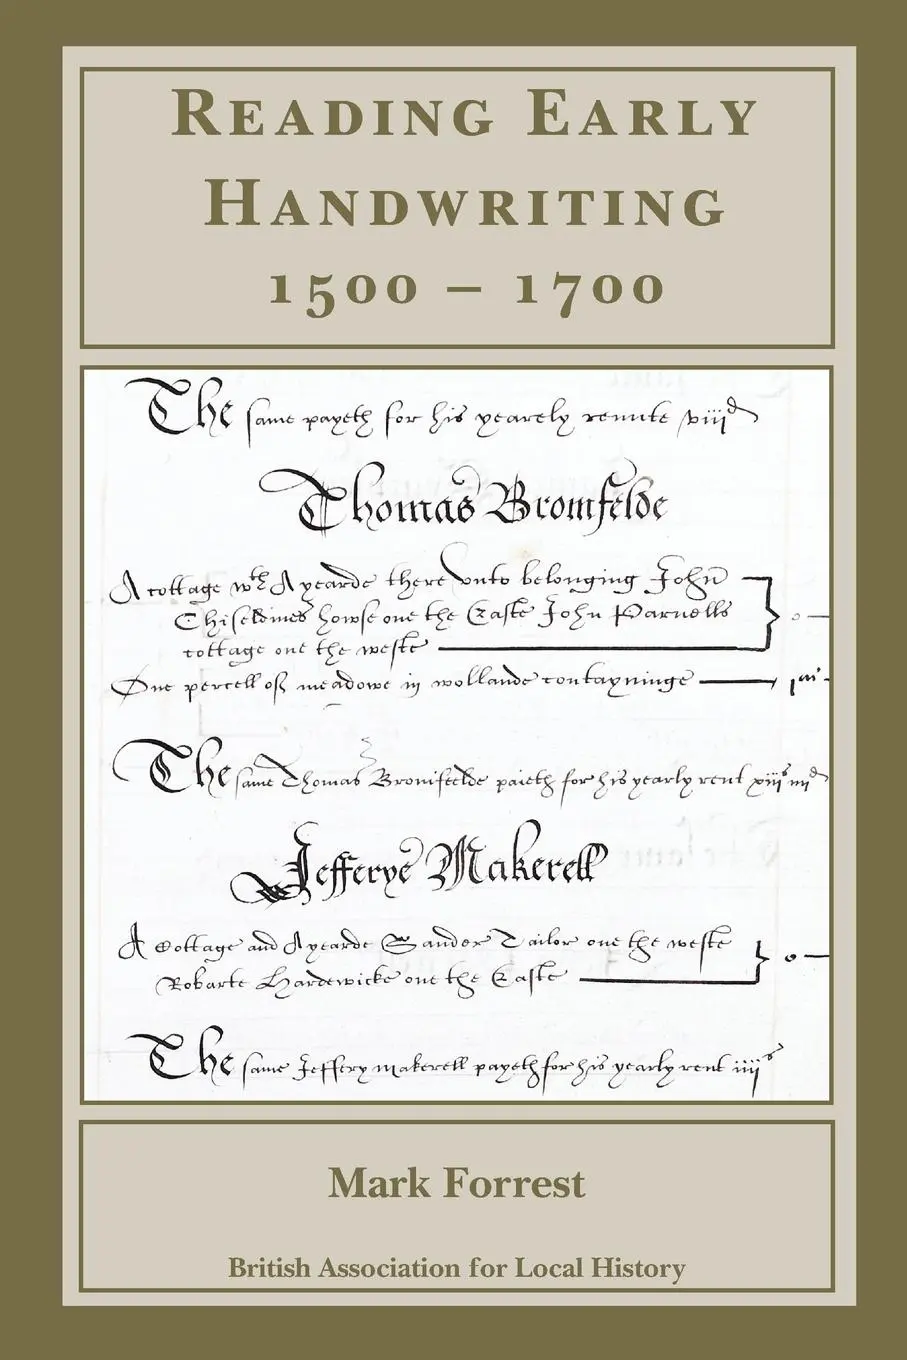 READING EARLY
HANDWRITING
1500 – 1700
The same payeth for his yearely rennte viiid
Thomas Bromfelde
A cottage wth A yearde there vnto belonging John
Chiseldines howse one the Easte John Parnells
cottage one the weste
One percell of meadowe in wollande contayninge
The same Thomas Bromfeelde paieth for his yearly rent xiiis iiiid
Jefferye Makerell
A Cottage and A yearde Sander Tailor one the weste
Robarte Hardewicke one the Easte
The same Jeffery makerell payeth for his yearly rent iiiis
Mark Forrest
British Association for Local History